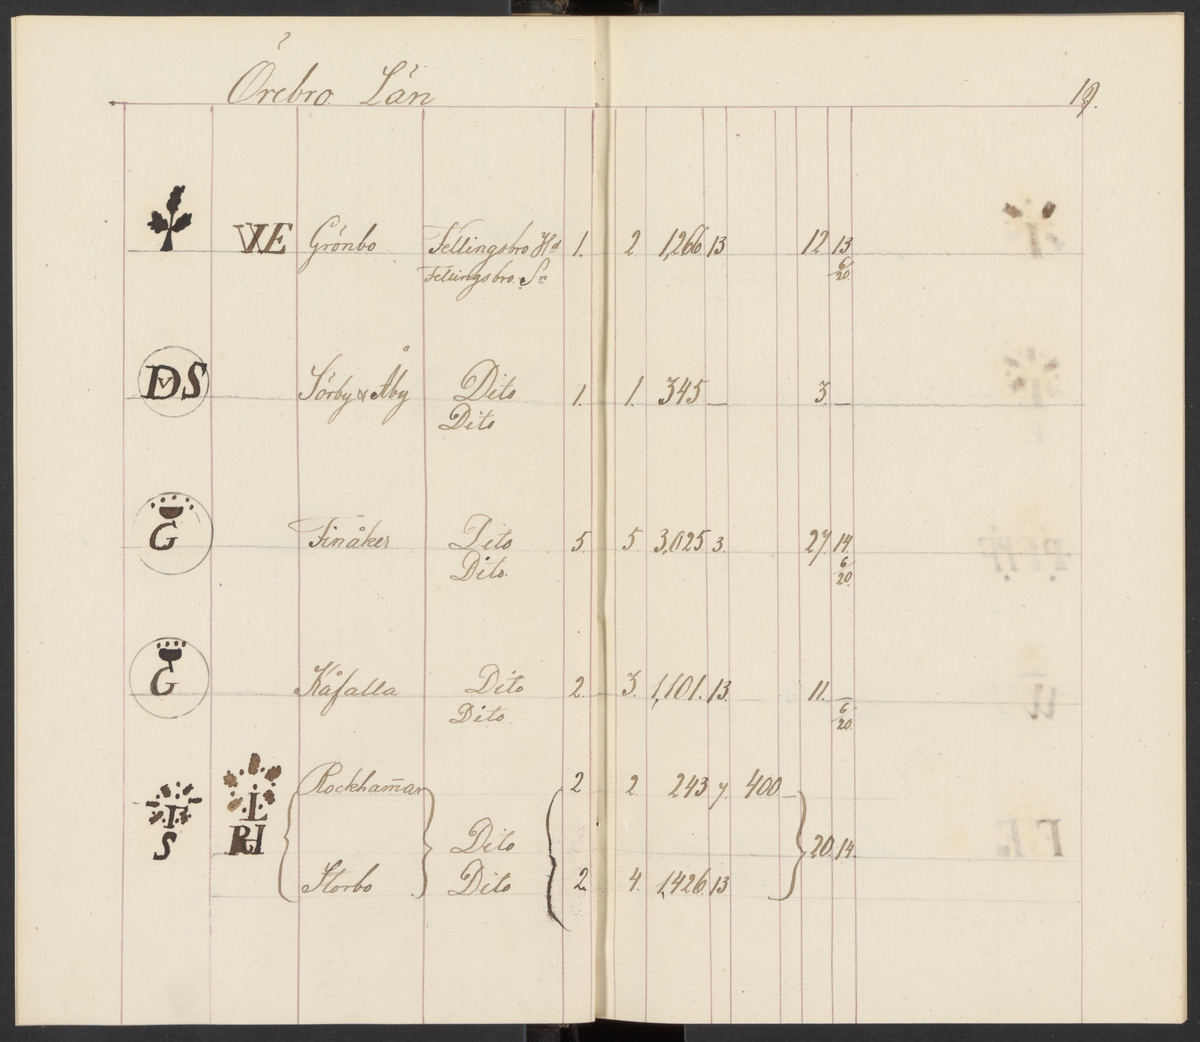 Örebro Län 19.
WE Grönbo Fellingsbro Hd 1. 2 1,266 13 12 13 6/20
Fellingsbro Sn
DvS Sörby & Åby Dito 1. 1. 345 _ 3. _
Dito
G Finåker Dito 5. 5 3,025 3. 27 14. 6/20
Dito.
G Kåfalla Dito 2. 3. 1,101. 13. 11. _ 6/20
Dito.
Rockham̄ar 2 2 243 7. 400 _
F S L RH Dito 20. 14.
Storbo Dito 2. 4. 1,426. 13